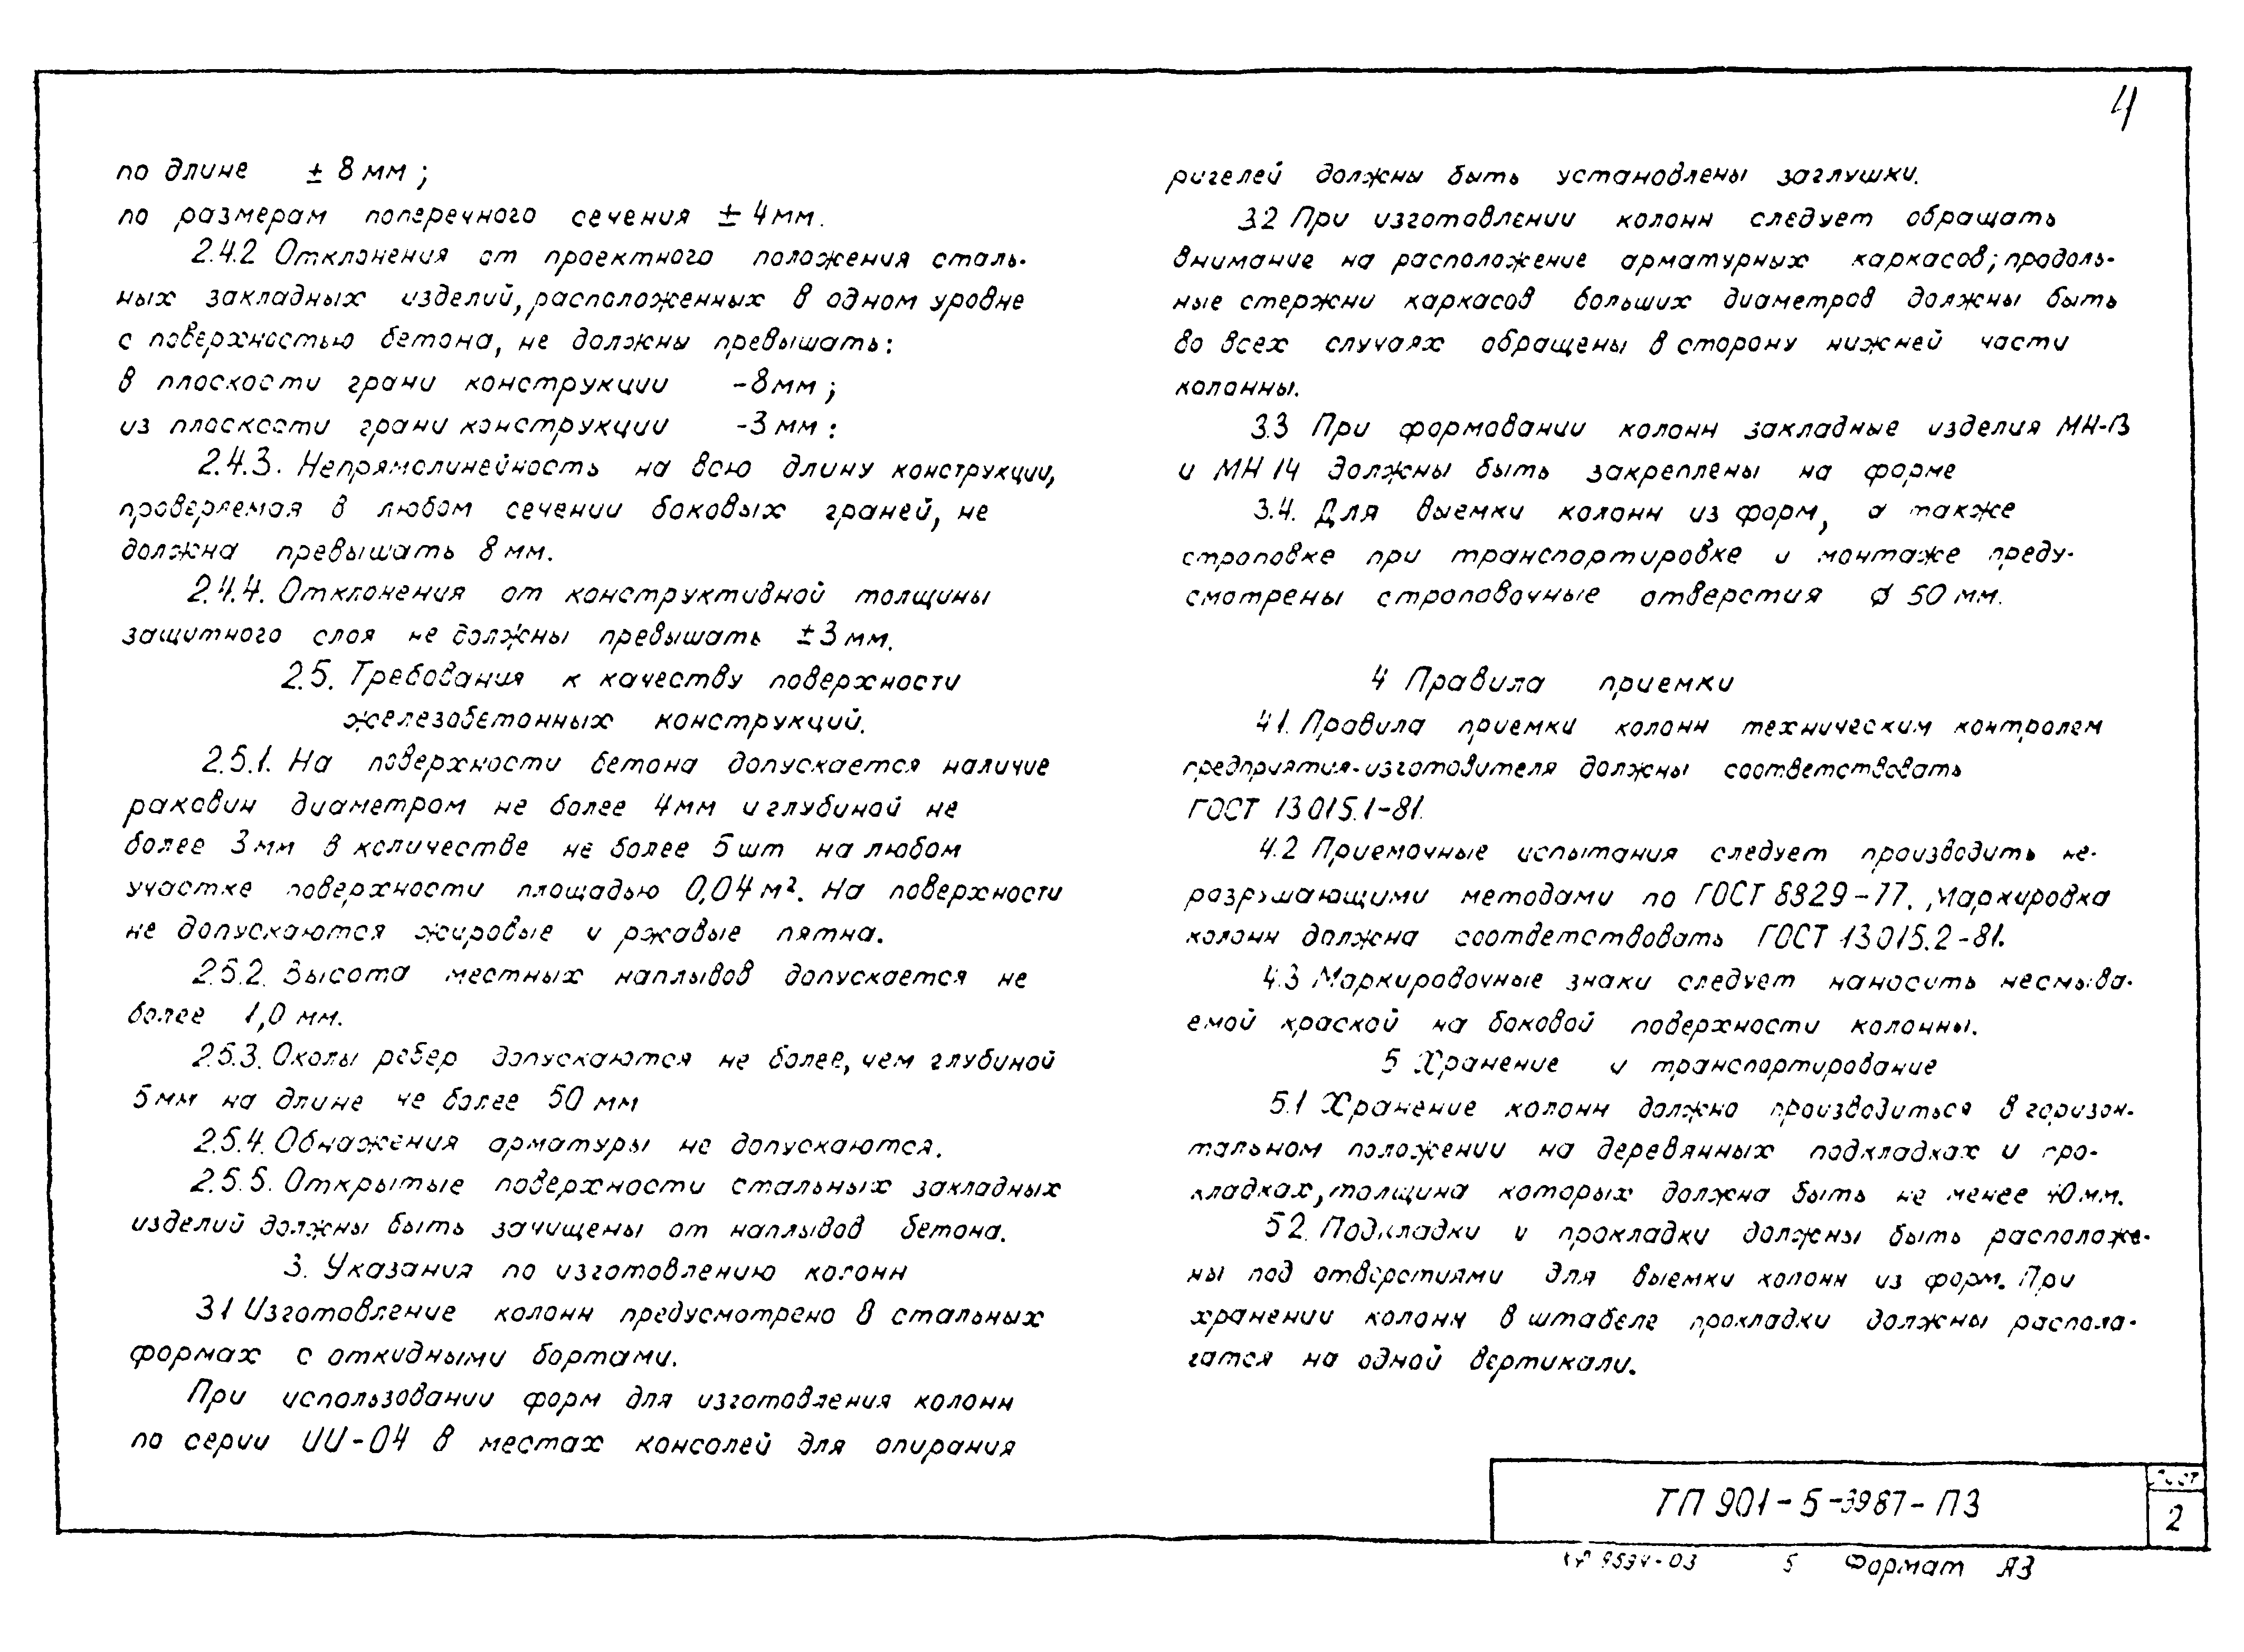 4
по длине ± 8 мм ;
по размерам поперечного сечения ± 4 мм.
2.4.2 Отклонения от проектного положения сталь-
ных закладных изделий, расположенных в одном уровне
с поверхностью бетона, не должны превышать:
в плоскости грани конструкции -8 мм ;
из плоскости грани конструкции -3 мм :
2.4.3. Непрямолинейность на всю длину конструкции,
проверяемая в любом сечении боковых граней, не
должна превышать 8 мм.
2.4.4. Отклонения от конструктивной толщины
защитного слоя не должны превышать ±3 мм.
2.5. Требования к качеству поверхности
железобетонных конструкций.
2.5.1. На поверхности бетона допускается наличие
раковин диаметром не более 4 мм и глубиной не
более 3 мм в количестве не более 5 шт на любом
участке поверхности площадью 0,04 м². На поверхности
не допускаются жировые и ржавые пятна.
2.5.2. Высота местных наплывов допускается не
более 1,0 мм.
2.5.3. Околы ребер допускаются не более, чем глубиной
5 мм на длине не более 50 мм
2.5.4. Обнажения арматуры не допускаются.
2.5.5. Открытые поверхности стальных закладных
изделий должны быть зачищены от наплывов бетона.
3. Указания по изготовлению колонн
3.1 Изготовление колонн предусмотрено в стальных
формах с откидными бортами.
При использовании форм для изготовления колонн
по серии ИИ-04 в местах консолей для опирания
ригелей должны быть установлены заглушки.
3.2 При изготовлении колонн следует обращать
внимание на расположение арматурных каркасов; продоль-
ные стержни каркасов больших диаметров должны быть
во всех случаях обращены в сторону нижней части
колонны.
3.3 При формовании колонн закладные изделия МН-13
и МН 14 должны быть закреплены на форме
3.4. Для выемки колонн из форм, а также
строповке при транспортировке и монтаже преду-
смотрены строповочные отверстия ø 50 мм.
4 Правила приемки
4.1. Правила приемки колонн техническим контролем
предприятия-изготовителя должны соответствовать
ГОСТ 13015.1-81.
4.2 Приемочные испытания следует производить не-
разрушающими методами по ГОСТ 8829-77. Маркировка
колонн должна соответствовать ГОСТ 13015.2-81.
4.3 Маркировочные знаки следует наносить несмыва-
емой краской на боковой поверхности колонны.
5 Хранение и транспортирование
5.1 Хранение колонн должно производиться в горизон-
тальном положении на деревянных подкладках и про-
кладках, толщина которых должна быть не менее 40 мм.
5.2. Подкладки и прокладки должны быть расположе-
ны под отверстиями для выемки колонн из форм. При
хранении колонн в штабеле прокладки должны распола-
гатся на одной вертикали.
ТП 901-5-3987-ПЗ
Лист
2
9594-03 5 Формат А3